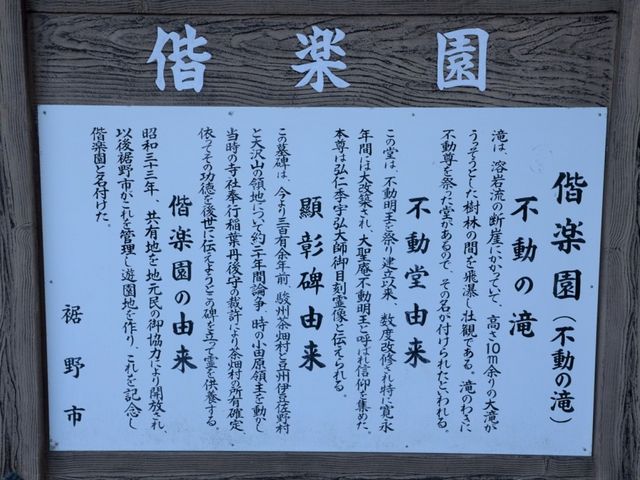 偕楽園
偕楽園(不動の滝)
不動の滝
滝は、溶岩流の断崖にかかっていて、高さ10m余りの大滝が
うっそうとした樹林の間を飛瀑し壮観である。滝のわきに
不動尊を祭った堂があるので、その名が付けられたといわれる。
不動堂由来
この堂は、不動明王を祭り、建立以来、数度改修され特に寛永
年間には大改築され、大聖庵不動明王と呼ばれ信仰を集めた。
本尊は弘仁季宇弘大師御自刻霊像と伝えられる。
顯彰碑由来
この墓碑は、今より三百有余年前、駿州茶畑村と豆州伊豆佐野村
と大沢山の領地について約二十年間論争、時の小田原領主を動かし
当時の寺社奉行稲葉丹後守の裁許により茶畑村の所有確定、
依ってその功徳を後世に伝えようとこの碑を立て霊を供養する。
偕楽園の由来
昭和三十三年、共有地を地元民の御協力により開放され、
以後裾野市がこれを管理し遊園地を作り、これを記念し
偕楽園と名付けた。
裾野市